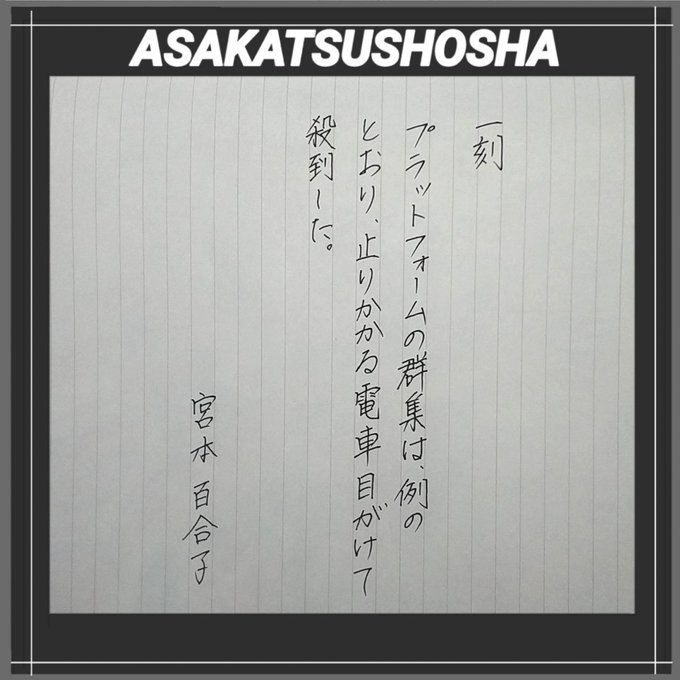 ASAKATSUSHOSHA
一刻
プラットフォームの群集は、例の
とおり、止りかかる電車目がけて
殺到した。
宮本 百合子